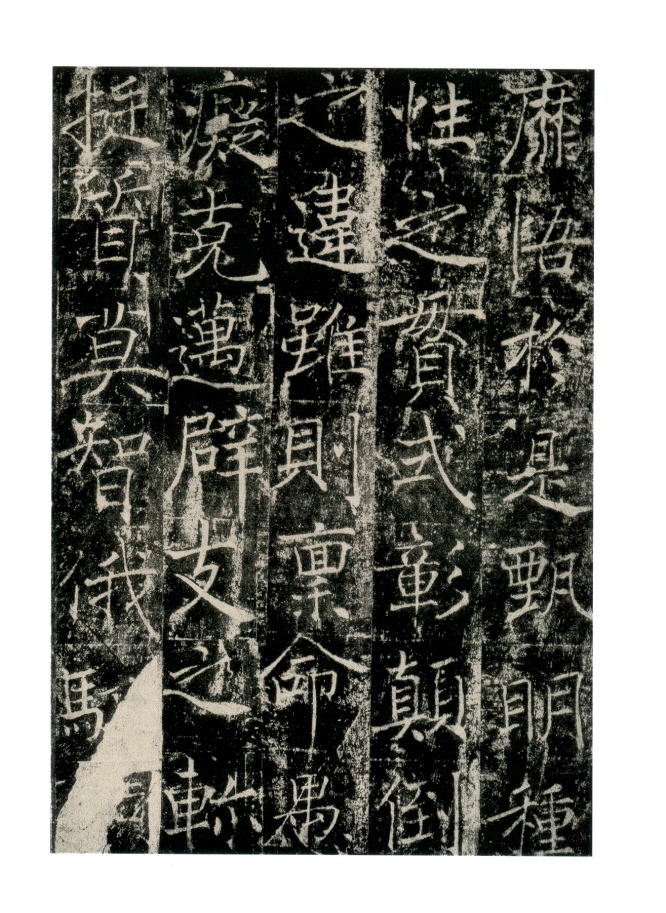 靡悟於是甄明種
性之貫式彰顛倒
之違雖則稟命愚
癡克邁辟支之軫
挺質莫智俄